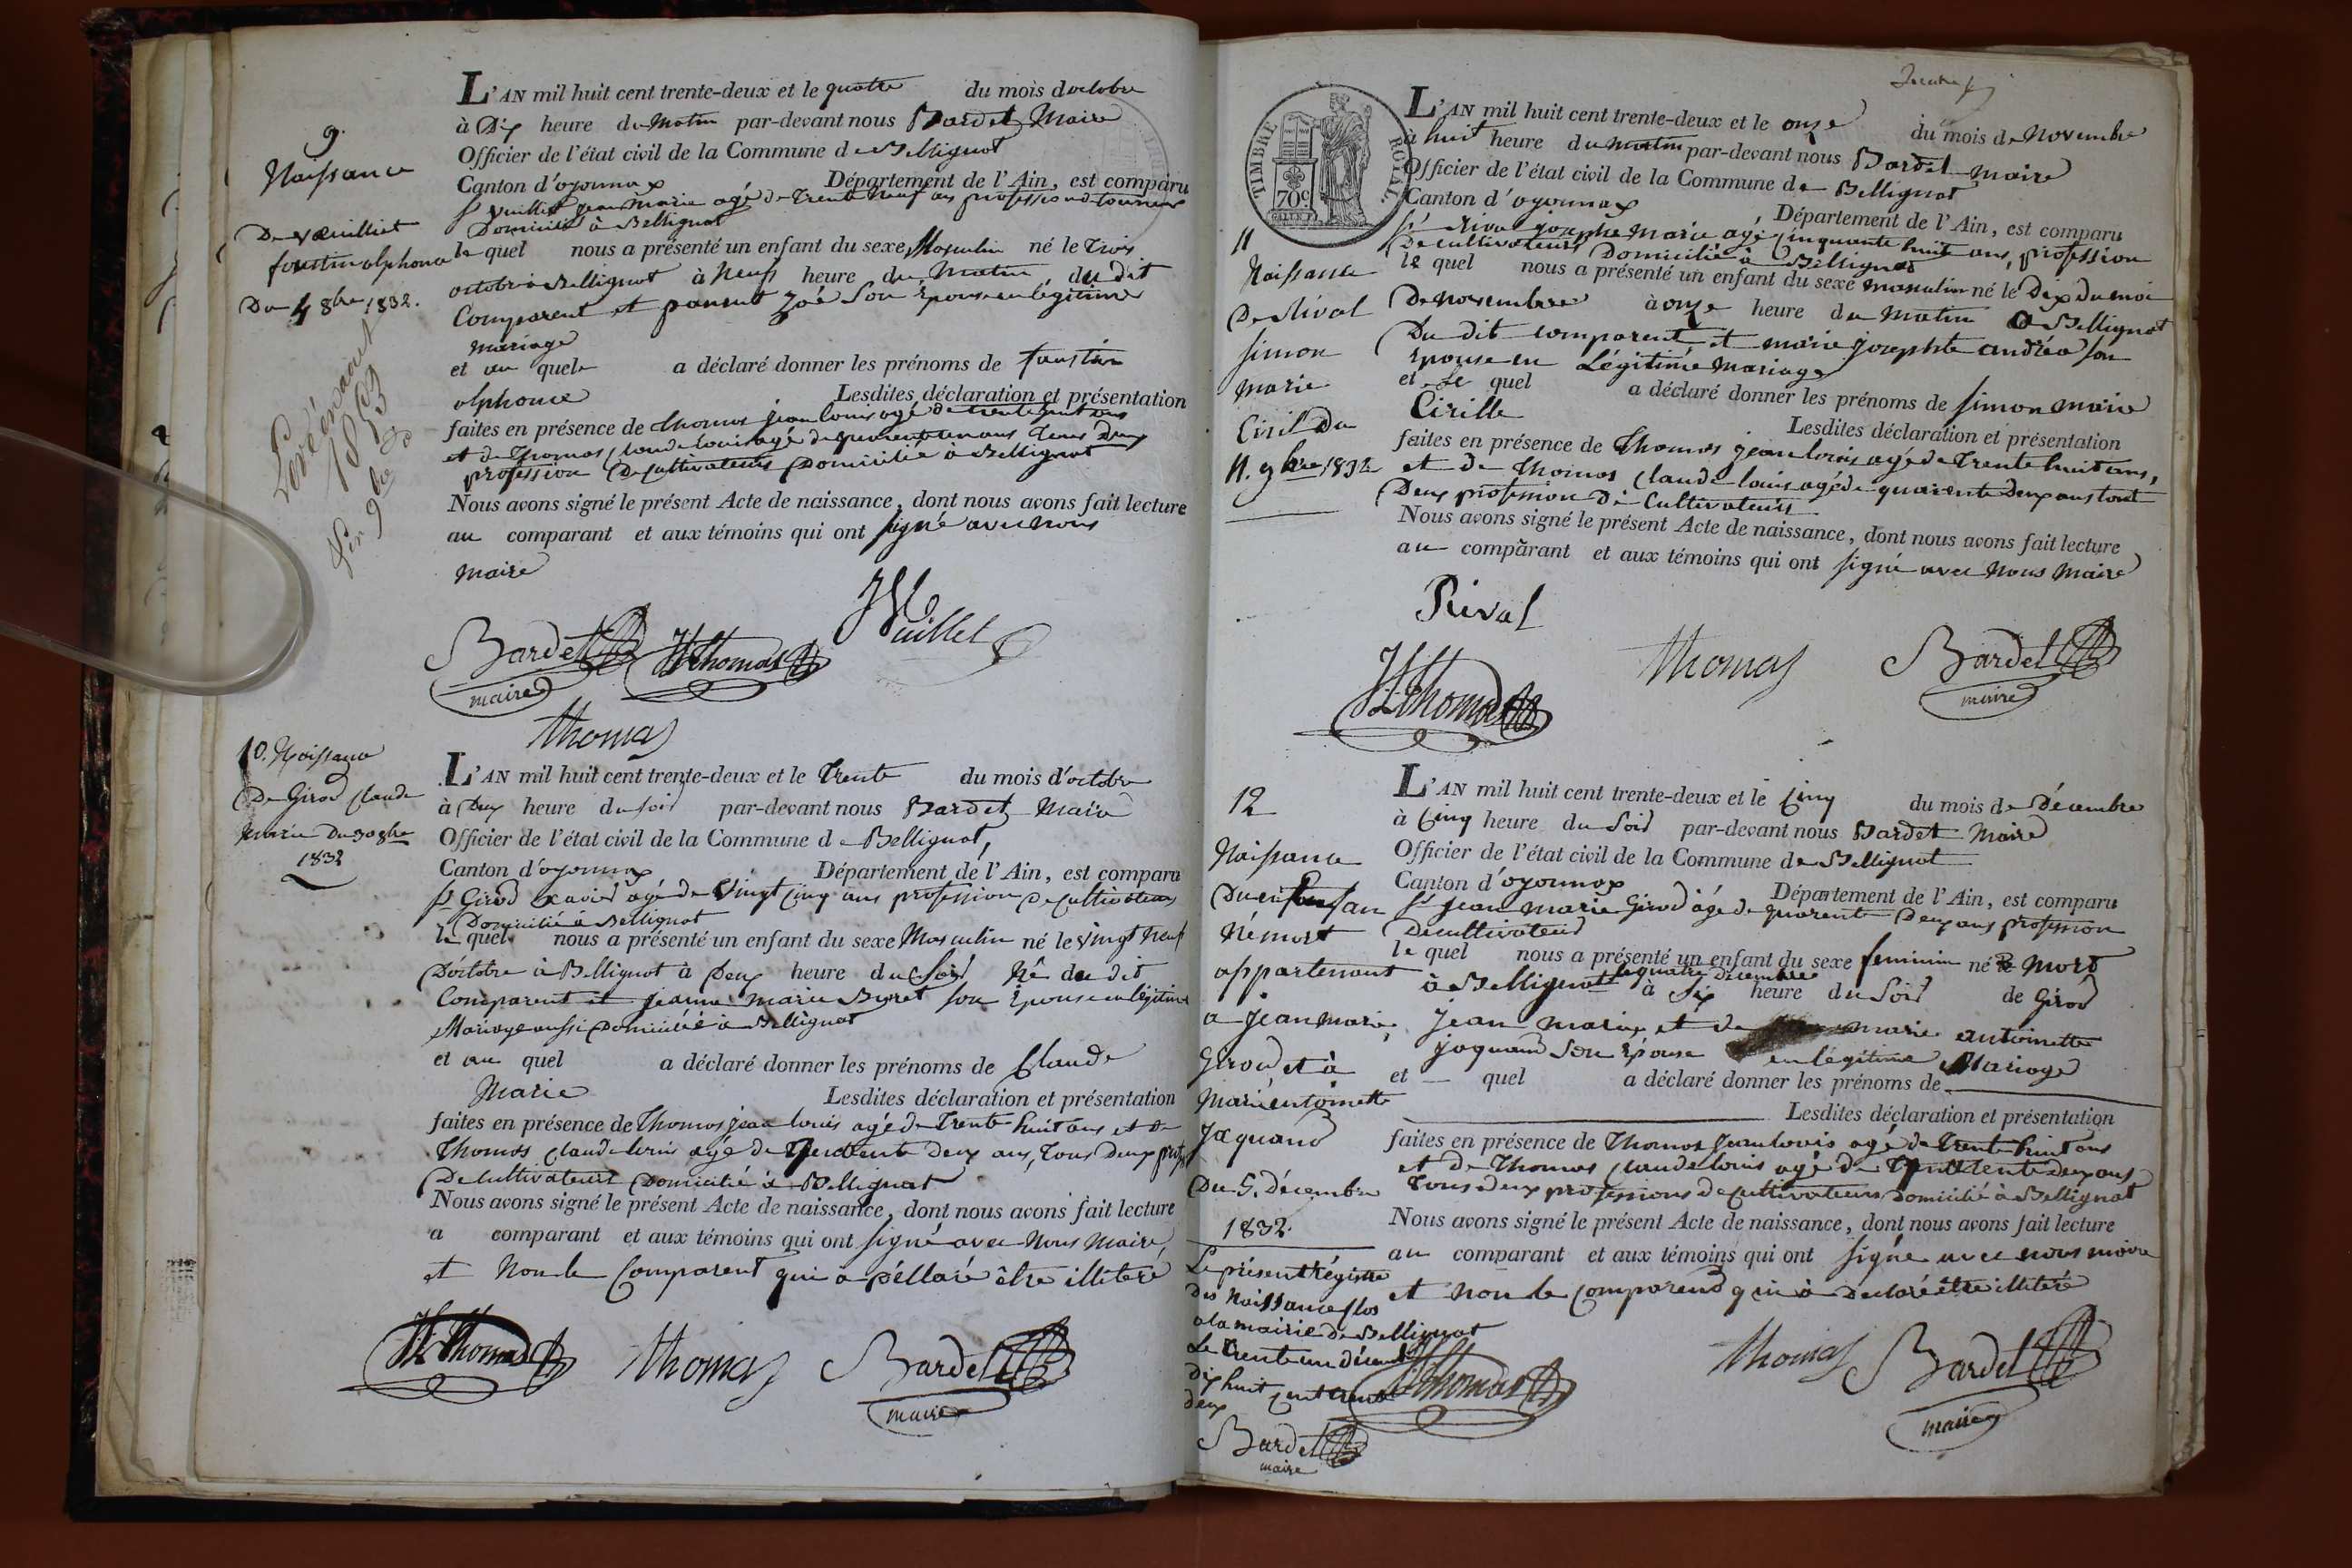 9.
Naissance
De Vuilliet
foustin alphonce
Du 4 8bre 1832.
L'AN mil huit cent trente-deux et le quatre du mois doctobre
à Dix heure du Matin par-devant nous Bardet Maire
Officier de l'état civil de la Commune de Bellignat
Canton d'oyonnax Département de l'Ain, est comparu
Sr Vuillet jean Marie agé de Trente Neuf ans profession de tourneur
Domicilié à Bellignat
le quel nous a présenté un enfant du sexe Masculin né le Trois
octobre à Bellignat à Neuf heure du Matin du dit
Comparent et pannut Zoé Son Epouse en légitime
Mariage
et au quel a déclaré donner les prénoms de faustin
alphonce Lesdites déclaration et présentation
faites en présence de Thomas jean louis agé de trente huit ans
et de Thomas Claude louis agé de quarente un ans Tous Deux
profession De Cultivateurs Domicilié à Bellignat
Nous avons signé le présent Acte de naissance, dont nous avons fait lecture
au comparant et aux témoins qui ont signé avec nous
Maire
Bardet JL Thomas JM Vuillet
maire
Thomas
10. Naissance
De Girod Claude
Marie Du 30 8bre
1832
L'AN mil huit cent trente-deux et le Trente du mois d'octobre
à Deux heure du soir par-devant nous Bardet Maire
Officier de l'état civil de la Commune de Bellignat,
Canton d'oyonnax Département de l'Ain, est comparu
Sr Girod Xavier agé de Vingt Cinq ans profession De Cultivateur
Domicilié à Bellignat
le quel nous a présenté un enfant du sexe Masculin né le Vingt Neuf
D'octobre à Bellignat à Deux heure du Soir Né du dit
Comparent et jeanne Marie Buret son Epouse en légitime
Mariage aussi Domiciliée à Bellignat
et au quel a déclaré donner les prénoms de Claude
Marie Lesdites déclaration et présentation
faites en présence de Thomas jean louis agé de Trente huit ans et de
Thomas Claude louis agé de quarente deux ans, Tous Deux profs
De Cultivateurs Domicilié à Bellignat
Nous avons signé le présent Acte de naissance, dont nous avons fait lecture
a comparant et aux témoins qui ont signé avec Nous Maire,
et Non le Comparent qui a déllaré être illiteré
JL Thomas Thomas Bardet
maire
TIMBRE ROYAL
70c.
11
Naissance
De Rival
simon
marie
Ciril Du
11. 9bre 1832
L'AN mil huit cent trente-deux et le onze du mois de Novembre
à huit heure du matin par-devant nous Bardet maire
Officier de l'état civil de la Commune de Bellignat
Canton d'oyonnax Département de l'Ain, est comparu
Sr Rival josephe Marie agé Cinquante huit ans, profession
De cultivateurs Domicilié à Bellignat
le quel nous a présenté un enfant du sexe masculin né le Dix du moi
De novembre à onze heure du matin à Bellignat
Du dit comparent et marie josephte andréa son
Epouse en Légitime Mariage
et le quel a déclaré donner les prénoms de simon marie
Cirille Lesdites déclaration et présentation
faites en présence de Thomas jean louis agé de Trente huit ans,
et de Thomas Claude louis agé de quarente Deux ans tout
Deux profession De Cultivateurs
Nous avons signé le présent Acte de naissance, dont nous avons fait lecture
au comparant et aux témoins qui ont signé avec Nous Maire
Rival
JL Thomas Thomas Bardet
maire
12
Naissance
Du enfan
Né mort
appartenant
a jean marie
Girod et à
Marie antoinette
Jaquand
Du 5. décembre
1832.
L'AN mil huit cent trente-deux et le Cinq du mois de Décembre
à Cinq heure du Soir par-devant nous Bardet Maire
Officier de l'état civil de la Commune de Bellignat
Canton d'oyonnax Département de l'Ain, est comparu
Sr jean marie Girod âgé de quarente Deux ans profession
De cultivateur
le quel nous a présenté un enfant du sexe feminin né Mort
à Bellignat le quatre décembre à Six heure du Soir de Girod
jean marie et de marie antoinette
jaquand Son Epouse en légitime Mariage
et — quel a déclaré donner les prénoms de
Lesdites déclaration et présentation
faites en présence de Thomas Jean louis agé de Trente huit ans
et de Thomas Claude louis agé de quarente deux ans
Tous deux professions de cultivateurs Domicilié à Bellignat
Nous avons signé le présent Acte de naissance, dont nous avons fait lecture
au comparant et aux témoins qui ont signé avec nous maire
et non le comparend qui à declaré être illiteré
Le présent régistre
des Naissance Clos
a la mairie de Bellignat
Le Trente un décembre
dix huit cent trente
deux
Bardet
maire
JL Thomas Thomas Bardet
maire